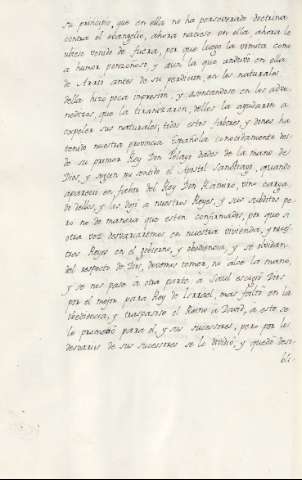 su principio, que en ella no ha perseverado doctrina
contra el evangelio, ahora naciese en ella ahora le
ubiese venido de fuera, por que luego la vomita como
a humor ponzoñoso, y aun la que anduvo en ella
de Arrio antes de su perdicion, en los naturales
della hizo poca inpresion, y acentandose en los adve
nedizos, que la tiranizaron, dellos la ayudaron a
expeler sus naturales; todos estos fabores, y dones ha
tenido nuestra provincia Española conocidamente des
de su primer Rey Don Pelayo dados de la mano de
Dios, y segun su sentido el Apostol Sandtiago, quando
aparecio en frente del Rey Don Ramiro, vino cargado
de dellos, y los dejo a nuestros Reyes, y sus subditos pe
ro no de manera que esten confirmados, por que a
otra vez desvarasemos en nuestra vivienda, y nues
tros Reyes en el gobierno, y obediencia, y se olvidan
del respeto de Dios, devemos temer, no alce la mano,
y se nos pase à otra parte à Saul escogió Dios
por el mejor para Rey de Isrrael, mas faltó en la
obediencia, y traspasose el Reino a David, a este se
le prometió para el, y sus sucessores, pero por los
desvarios de sus sucessores se le dividió, y quedó desi